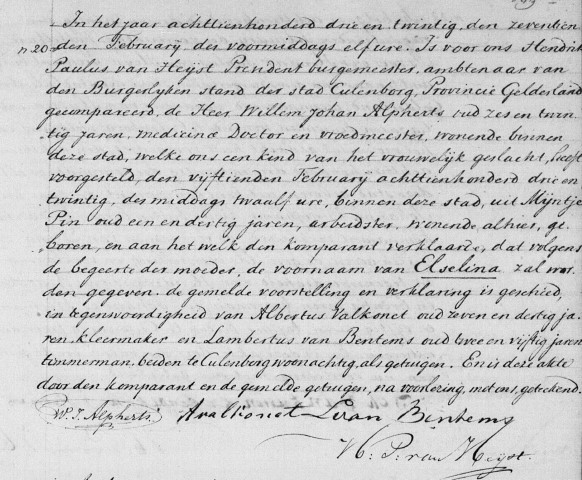 In het jaar achttienhonderd drie en twintig, den zeventien
n 20 den February des voormiddags elf ure. Is voor ons Hendrik
Paulus van Heijst President burgemeester, ambtenaar van
den Burgerlyken stand der stad Culenborg, Provincie Gelderland
gecompareerd, de Heer Willem Johan Alpherts oud zes en twin
tig jaren, medicina Doctor en vroedmeester, wonende binnen
deze stad, welke ons een kind van het vrouwelijk geslacht, heeft
voorgesteld, den vijftienden February achttienhonderd drie en
twintig, des middags twaalf ure, binnen deze stad, uit Mijntje
Pin oud een en dertig jaren, arbeidster, wonende alhier, ge
boren, en aan het welk den komparant verklaarde, dat volgens
de begeerte der moeder, de voornaam van Elselina zal wor
den gegeven. de gemelde voorstelling en verklaring is geschied,
in tegenwoordigheid van Albertus Valkonet oud zeven en dertig ja
ren, kleermaker en Lambertus van Bentems oud twee en vijftig jaren
timmerman, beiden te Culenborg woonachtig, als getuigen. En is deze akte
door den komparant en de gemelde getuigen, na voorlezing, met ons, geteekend.
W. J. Alpherts A valkonet L van Bentems
H: P: van Heijst.